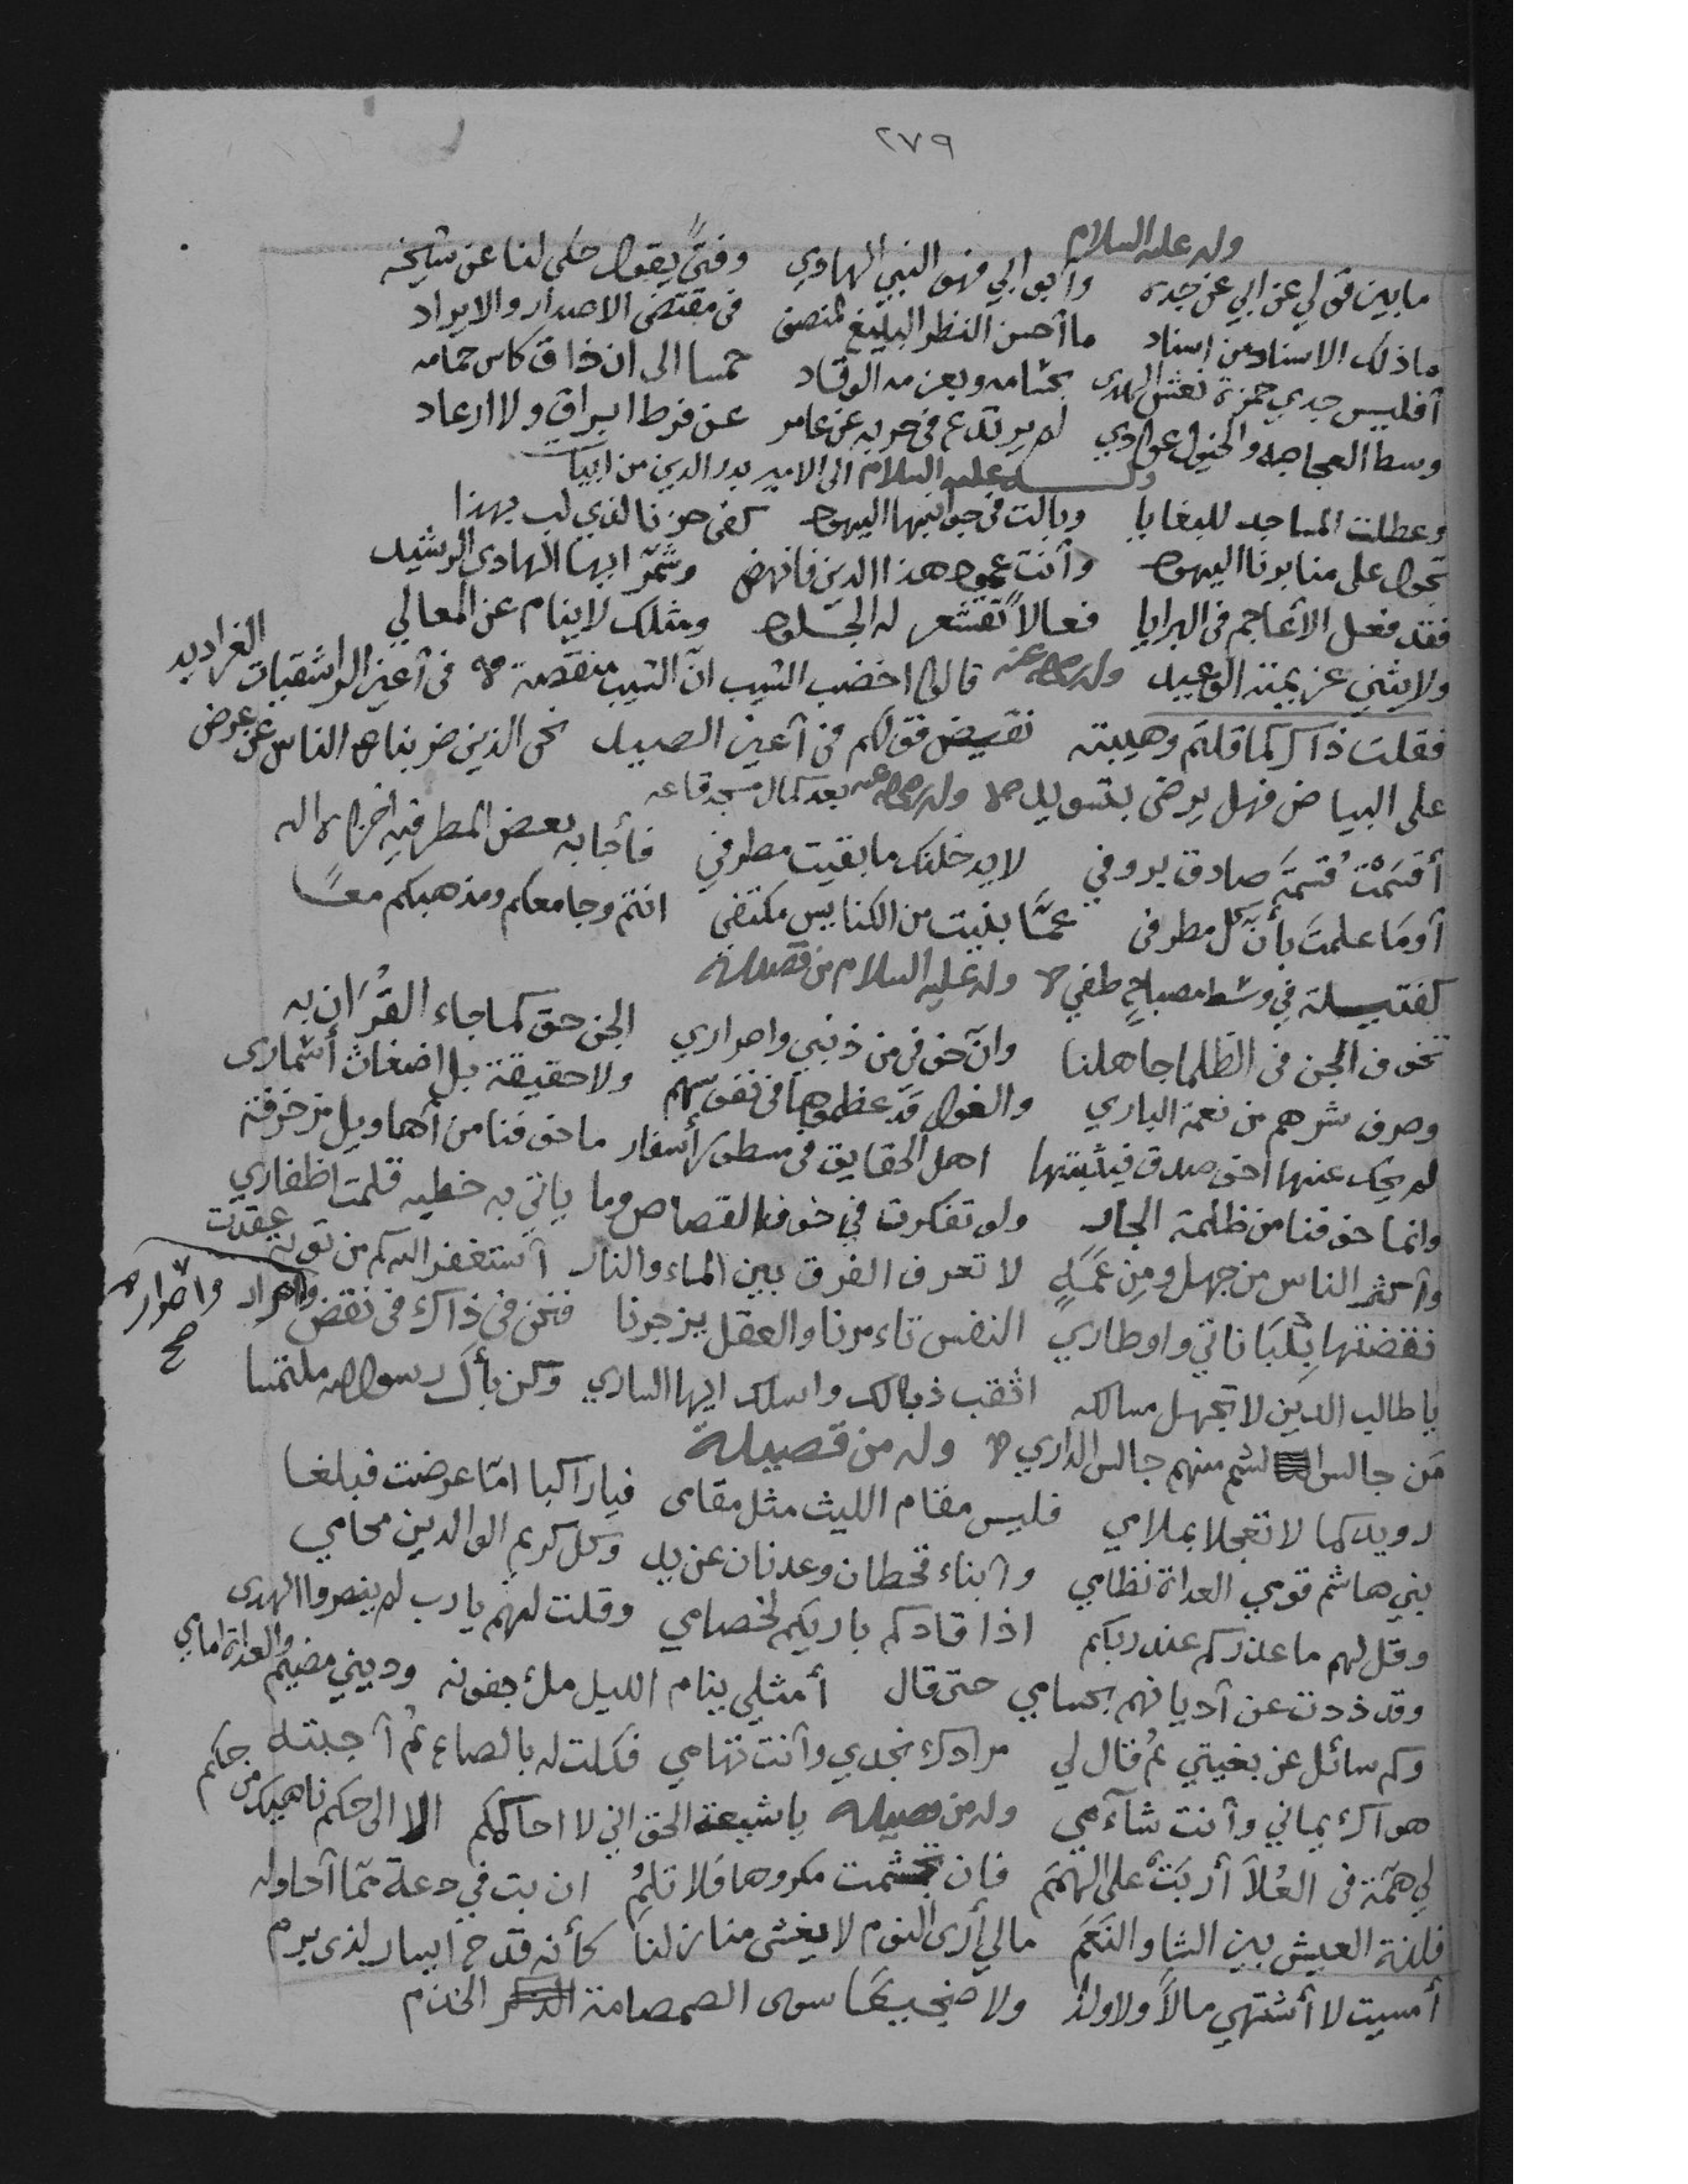 ٢٧٩
وله عليه السلام
ما بين قولي عن ابي عن جده وأبو ابي فهو النبي الهادي وفتىً يقول حكى لنا عن شيخه
ما ذلك الاسناد من اسناد ما أحسن النظر البليغ لمنصف في مقتضى الاصدار والايراد
أفليس جدي حمزة نعش الهدى بحسامه وبعزمه الوقاد حمسا الى ان ذاق كاس حمامه
وسط العجاجه والخيول عوادي لم يرتدع في حربه عن عامر عن فرط ابراق ولا ارعاد
وله عليه السلام الى الامير بدر الدين من ابيات
وعطلت المساجد للبغايا وبالت في جوانبها اليهود كفى حزنا لذي لب بهذا
تجول على منابرنا اليهود وأنت عمود هذا الدين فانهض وشمّر ايها الهادي الرشيد
فقد فعل الأعاجم في البرايا فعالاً تقشعر له الجلود ومثلك لا ينام عن المعالي
ولا يثني عزيمته الوعيد وله عنه قالوا اخضب الشيب انّ الشيب منقصة في أعين الراشقيات الغراديد
فقلت ذاكم كما قلتم وهيبته نقيض قولكم في أعين الصيد نحن الذين ضربنا الناس عن عرض
على البياض فهل يرضى بتسويد وله عنه بعد كمال مسجد قاعه
أقسمت قسمة صادق يروفي لا يدخلنك ما بقيت مطرفي فأجابه بعض المطرفيه اخزاه الله
أوما علمت بأن كل مطرفي عمّا بنيت من الكنايس مكتفي انتم وجامعكم ومذهبكم معًا
كفتيلة في وسط مصباحٍ طفي وله عليه السلام من قصيدة
الجن حق كما جاء القُرآن به
تخوف الجن في الظلما جاهلنا وانّ خوفي من ذنبي واصراري
وصرف شرهم من نعمة الباري والغول قد عظموها في نفوسهم ولا حقيقة بل اضغاث أشماري
لم يحك عنها اخو صدق فيثبتها اهل الحقايق في سطور أسفار ما خوفنا من أهاويل مزخرفة
وانما خوفنا من ظلمة الجار ولو تفكرت في خوف القصاص وما ياتي به خطيه قلمت اظفاري
وأكثر الناس من جهل ومن عمهٍ لا تعرف الفرق بين الماء والنار أستغفر الله كم من توبة عقدت
فنقضتها بلباناتي واوطاري النفس تاءمرنا والعقل يزجرنا فنحن في ذاك في نقض وامرار
واصرار صح
يا طالب الدين لا تجهل مسالكه اثقب ذبالك واسلك ايها الساري وكن بأل رسول الله ملتمسا
من جالس الشم منهم جالس الداري وله من قصيدة
رويدكما لا تعجلا بملامي فليس مقام الليث مثل مقامي فيا راكبا امّا عرضت فبلغا
بني هاشم قومي العداة نظامي وأبناء قحطان وعدنان عن يد وكل كريم الوالدين محامي
وقل لهم ما عذركم عند ربكم اذا قادكم باريكم لخصامي وقلت لهم يا رب لم ينصروا الهدى
وقد ذدت عن أديانهم بحسامي حتى قال أمثلي ينام الليل ملئ جفونه وديني مضيم والعداة امامي
وكم سائل عن بغيتي ثم قال لي مرادك نجدي وأنت تهامي فكلت له بالصاع ثم أجبته
هواك يماني وأنت شآءمي وله من قصيدة يا شيعة الحق اني لا احاكمكم الا الى حكم ناهيك من حكم
لي همّة في العُلا أربَت على الهمم فإن تجشمت مكروها فلا تلم ان بت في دعة ممّا أحاوله
فلذة العيش بين الشا والنعم مالي أرى النوم لا يغشى منازلنا كأنه قدح ايسار لذي يرم
أمسيت لا أشتهي مالاً ولا ولدًا ولا ضجيعًا سوى الصمصامة الخذم